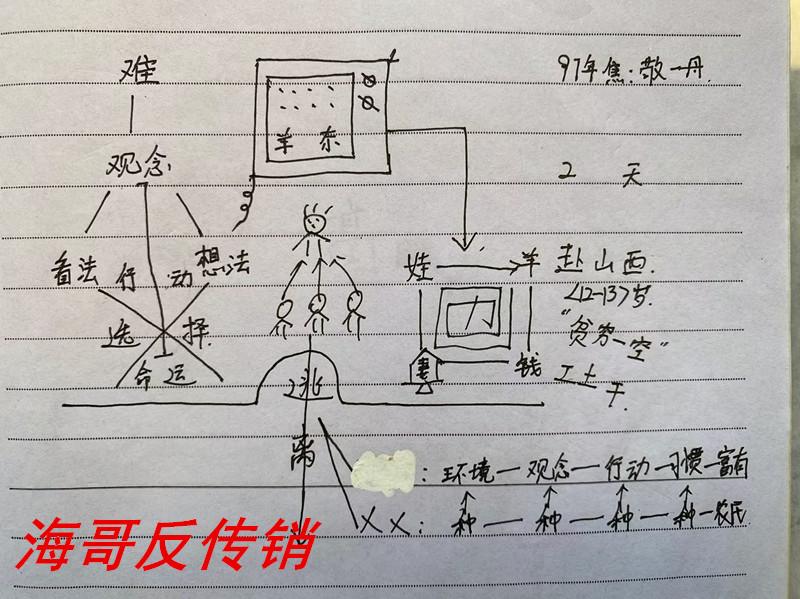 难
97年焦:敬一丹
观念
羊 东
2 天
看法 行 动 想法
娃 羊 赴山西.
<12-13>岁.
力
"贫穷一空"
选 择
命运
妻 钱
工 土 干
离
: 环境一观念一行动一习惯一富有
XX: 种一种一种一种一农民
海哥反传销